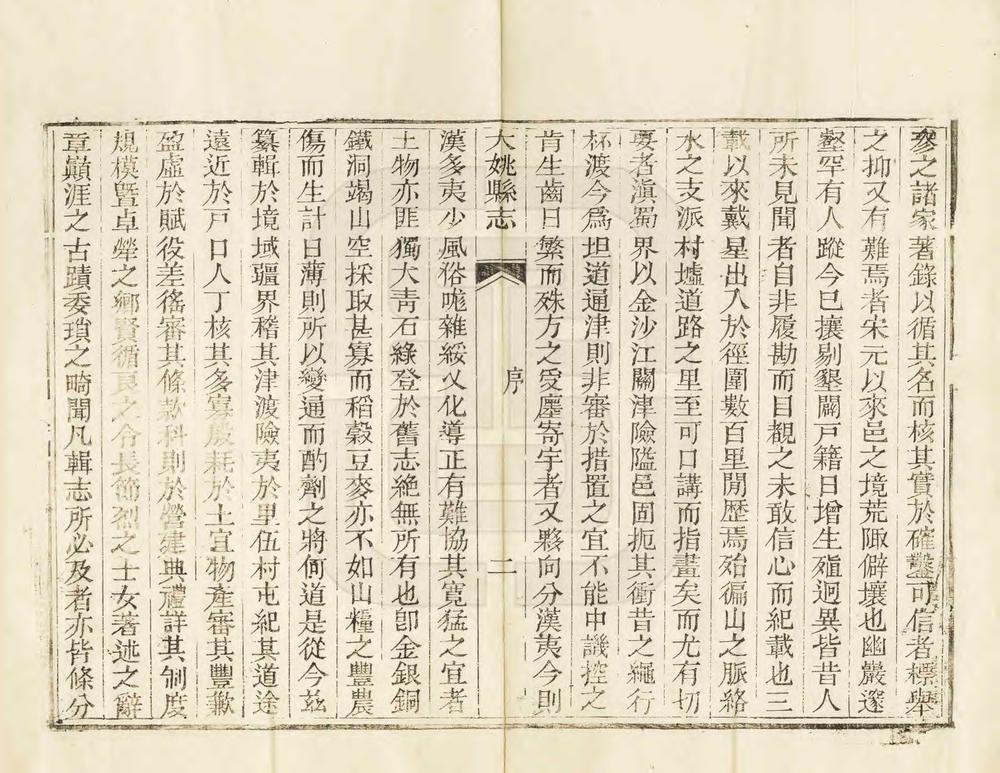 參之諸家著錄以循其名而核其實於確鑿可信者標舉
之抑又有難焉者宋元以來邑之境荒陬僻壤也幽巖邃
壑罕有人蹤今已攘剔墾闢戶籍日增生殖迥異皆昔人
所未見聞者自非履勘而目覩之未敢信心而紀載也三
載以來戴星出入於徑圍數百里閒歷焉殆徧山之脈絡
水之支派村墟道路之里至可口講而指畫矣而尤有切
要者滇蜀界以金沙江關津險隘邑固扼其衝昔之繩行
杯渡今爲坦道通津則非審於措置之宜不能中譏控之
肯生齒日繁而殊方之受廛寄宇者又夥向分漢夷今則
大姚縣志
序
二
漢多夷少風俗嘅雜綏乂化導正有難協其寬猛之宜者
土物亦匪獨大青石綠登於舊志絶無所有也卽金銀銅
鐵洞竭山空採取甚寡而稻穀豆麥亦不如山糧之豐農
傷而生計日薄則所以變通而酌劑之將何道是從今茲
纂輯於境域疆界稽其津渡險夷於里伍村屯紀其道途
遠近於戸口人丁核其多寡殷耗於土宜物產審其豐歉
盈虛於賦役差徭審其條款科則於營建典禮詳其制度
規模曁卓犖之鄉賢循良之令長節烈之士女著述之辭
章巔涯之古蹟委瑣之畸聞凡輯志所必及者亦皆條分